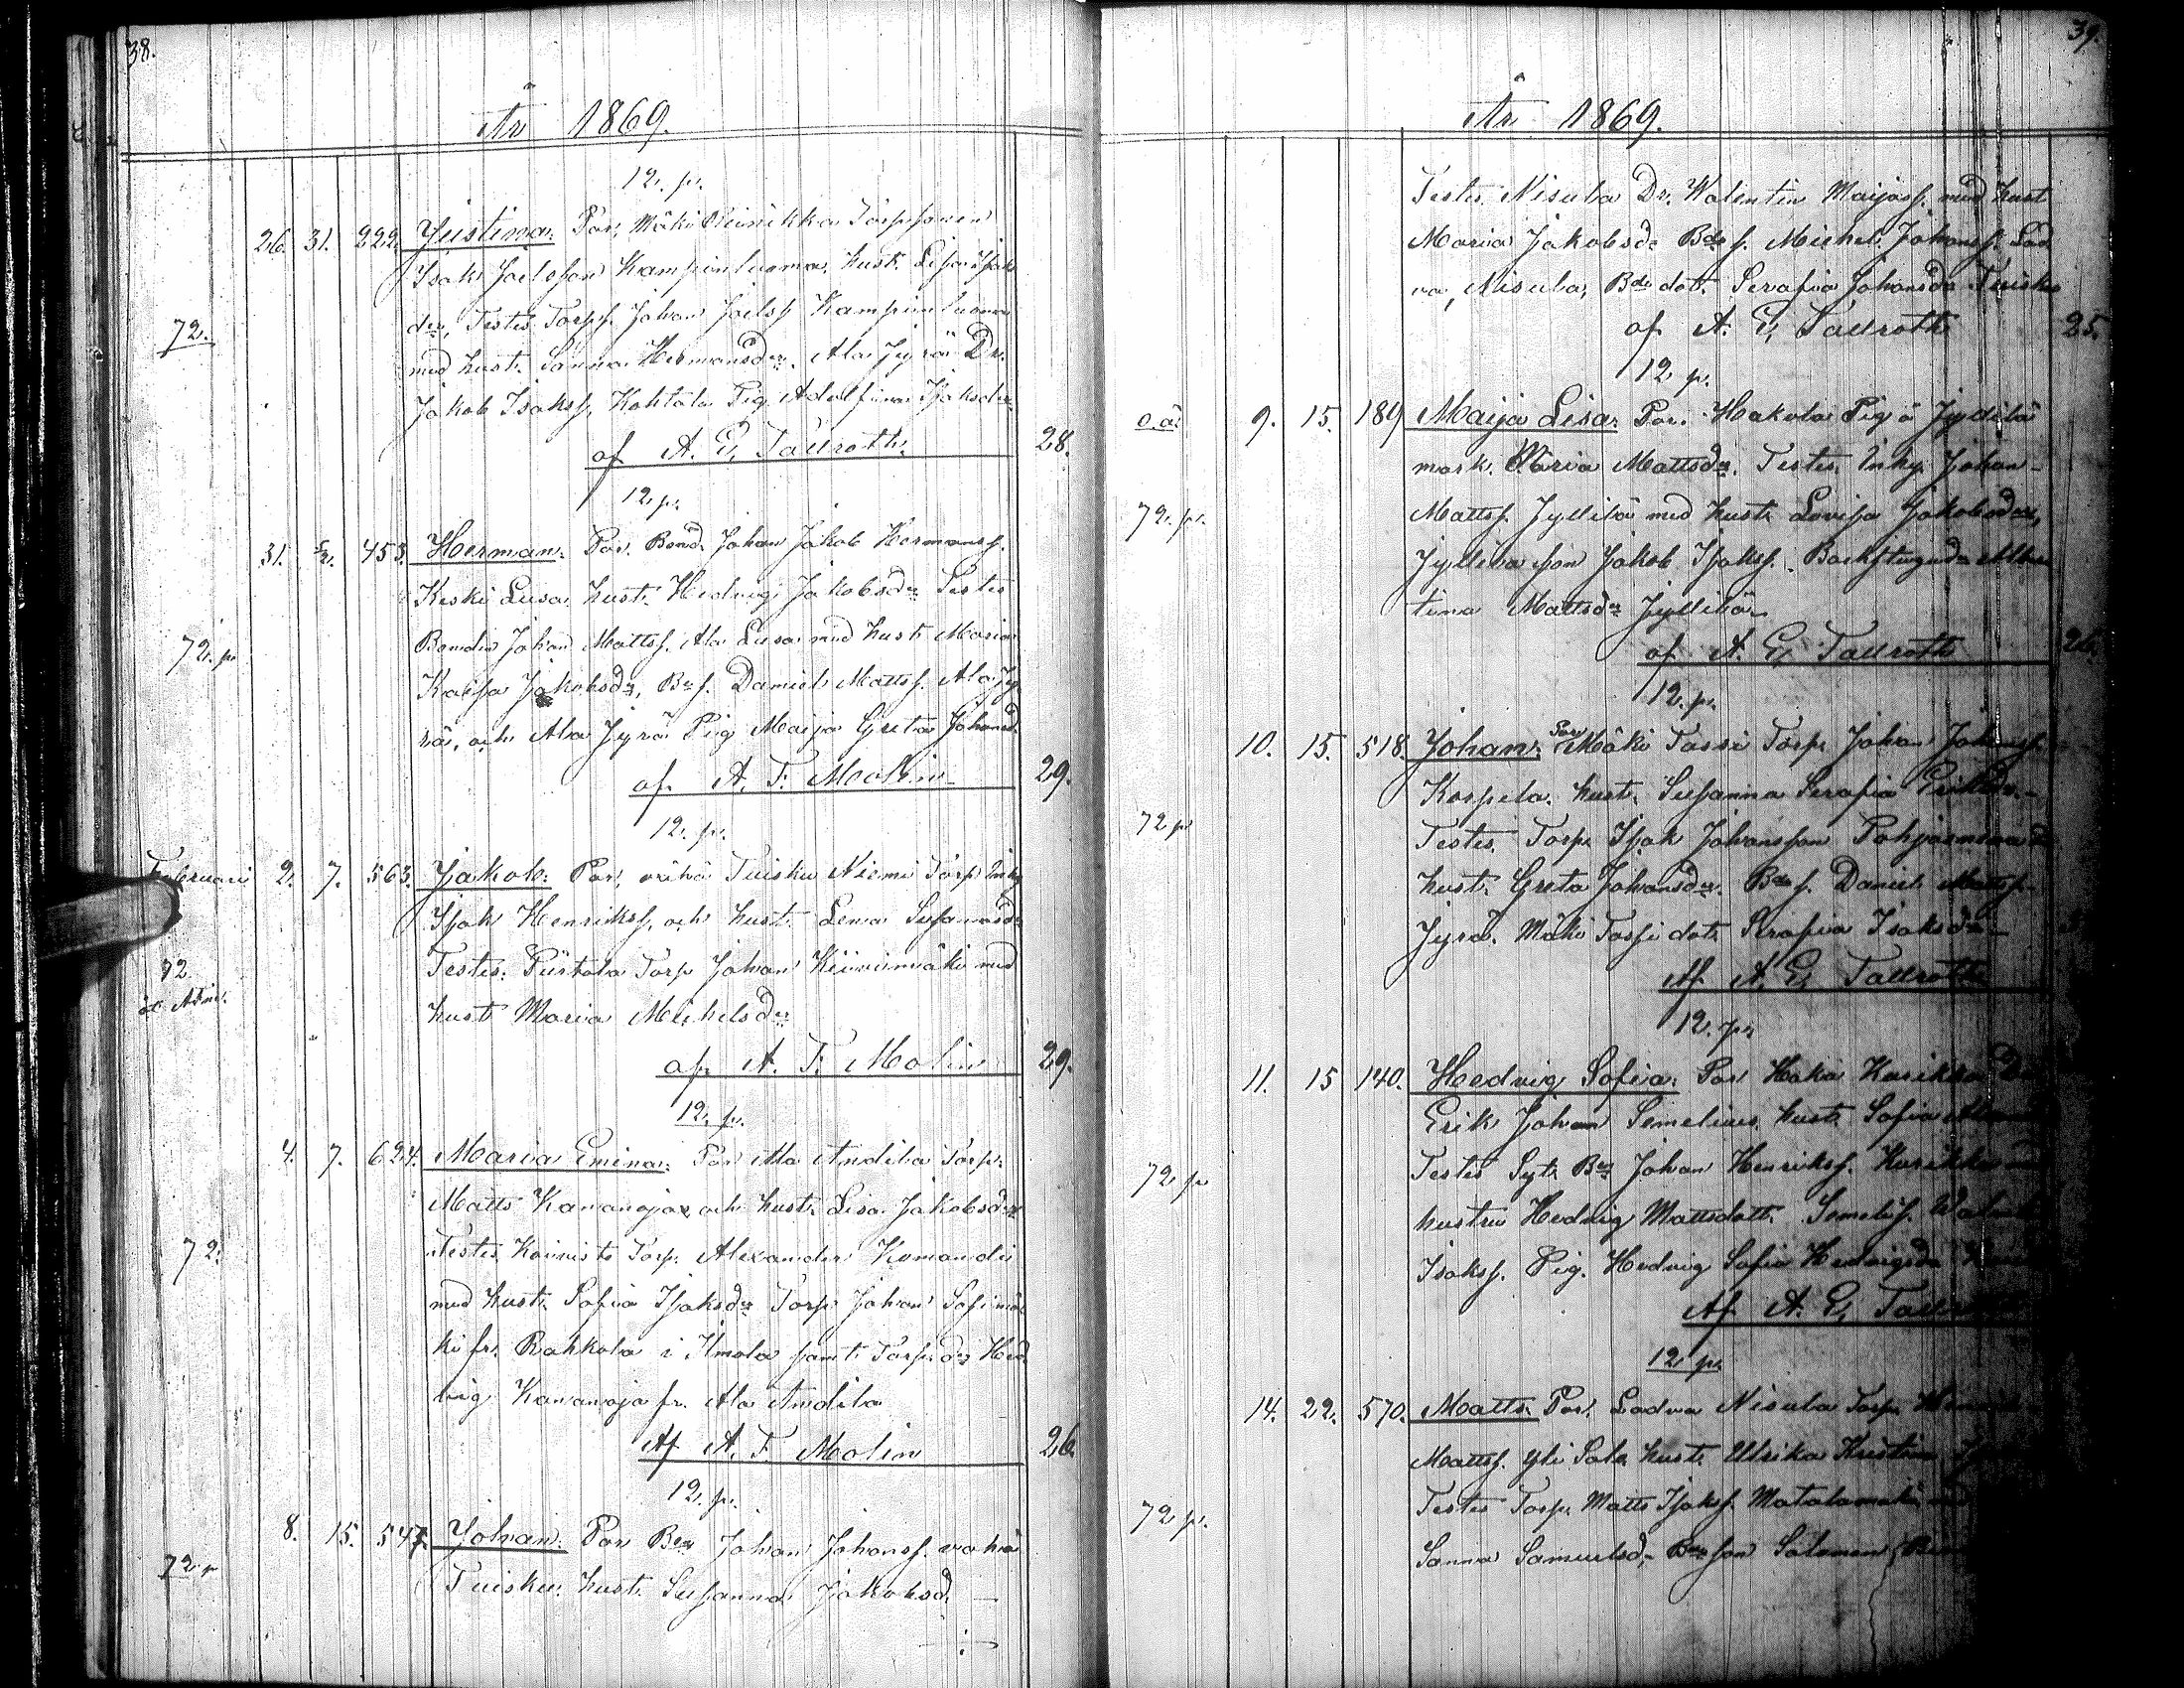 38.
År 1869.
12. p.
26. 31. 222. Justina. Par. Mäki Reinikka Torpparen
Isak Joelsson Kampinluoma, hust. Lisa Isaks
dr, Testes Torpp. Johan Joelss. Kampinluoma
72.
med hust. Sanna Hermansdr. Ala Jyrä Dr.
Jakob Isakss. Kohtala Pig. Adolfina Isaksdr
af A. E. Tallroth. 28.
12. p.
31. 5/2. 453. Herman. Par. Bond. Johan Jakob Hermanss.
Keski Lusa, hust. Hedvig Jakobsdr Testes
Bonden Johan Mattss. Ala Lusa med hust. Maria
72. p.
Kaisa Jakobsdr, Bs. Daniel Mattss. Ala Jy
rä, och Ala Jyrä Pig. Maija Greta Johansd.
af A. F. Molin 29.
12. p.
Februari 2. 7. 563. Jakob. Par. vähä Tuisku Niemi Torp. Inhy.
Isak Henrikss. och hust. Lena Susannasdr
Testes. Piirtola Torp. Johan Kiiviinmäki med
72.
hust. Maria Michelsdr
af A. F. Molin 29.
12. p.
4. 7. 624. Maria Emina. Par. Ala Andila Torp.
Matts Kananoja, och hust. Lisa Jakobsdr
Testes. Koivisto Torp. Alexander Komandi
72.
med hust. Sofia Isaksdr Torp. Johan Sofimä
ki fr. Rahkola i Ilmola samt Torp. dr Hed
vig Kananoja fr. Ala Andila
Af A. F. Molin 26.
12. p.
8. 15. 547. Johan. Par. Bn Johan Johanss. vähä
72. p
Tuisku. hust. Susanna Jakobsd. —
39.
År 1869.
Testes. Nisula Dr. Walentin Maijass. med hust
Maria Jakobsd. Bds s. Michel Johanss. Lad
va, Nisula, Bds dot. Serafia Johansdr Tuisku
af A. E. Tallroth 25.
12. p.
o. ä. 9. 15. 189 Maija Lisa. Par. Hakola Pig. å Jyllilä
mark. Maria Mattsdr. Testes. Inhy. Johan
72. p.
Mattss. Jyllilä med hust. Lovisa Jakobsdr,
Jyllilä son Jakob Isakss. Backstugudr Alber
tina Mattsdr Jyllilä
af A. E. Tallroth 26.
12. p.
10. 15. 518. Johan. Par. Mäki Tassi Torp. Johan Johanss.
Korpela. hust. Susanna Serafia Eriksdr.
72 p
Testes. Torp. Isak Johansson Pohjasmaa
hust. Greta Johansdr. Bds s. Daniel Mattss.
Jyrä. Mäki Tassi dot. Serafia Isaksdr
Af A. E. Tallroth
12. p.
11. 15 140. Hedvig Sofia. Par. Haka Kurikka
Erik Johan Semelius hust. Sofia
Testes Syt. Bn Johan Henrikss. Kurikka
72. p
hustru Hedvig Mattsdott. Semelis.
Isakss. Pig. Hedvig Sofia Hedvigsdr
Af A. E. Tallroth
12. p.
14. 22. 570. Matts. Par. Ladva Nisula Torp.
Mattss. Yli Salo hust. Ulrika Kristina
72. p.
Testes Torp. Matts Isakss. Matalamäki
Sanna Samuelsd. Bds son Salomon